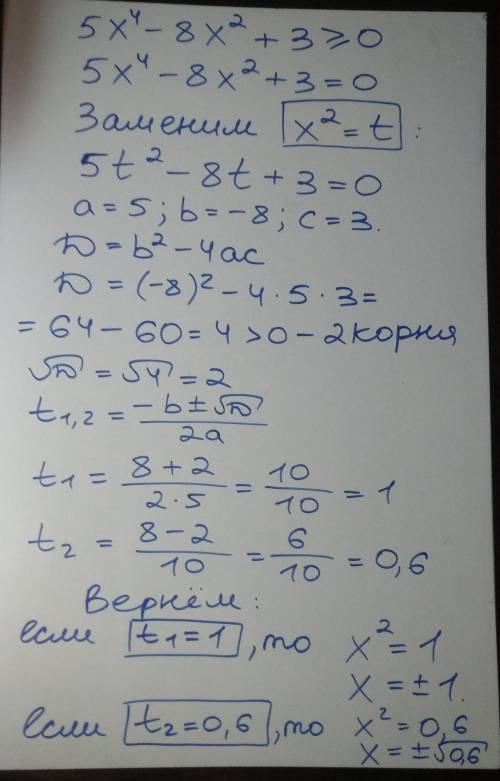 5x⁴ − 8x² + 3 ⩾ 0
5x⁴ − 8x² + 3 = 0
Заменим x² = t :
5t² − 8t + 3 = 0
a = 5 ; b = −8 ; c = 3.
D = b² − 4ac
D = (−8)² − 4 · 5 · 3 =
= 64 − 60 = 4 > 0 − 2 корня
√D = √4 = 2
t₁,₂ = (−b ± √D)/(2a)
t₁ = (8 + 2)/(2·5) = 10/10 = 1
t₂ = (8 − 2)/10 = 6/10 = 0,6
Вернём :
если t₁ = 1 , то x² = 1
x = ± 1.
если t₂ = 0,6 , то x² = 0,6
x = ±√0,6